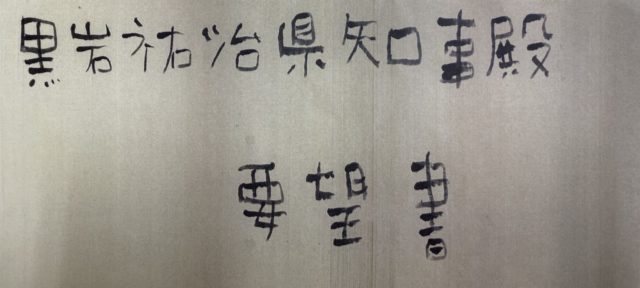 黒岩祐治県知事殿
要望書